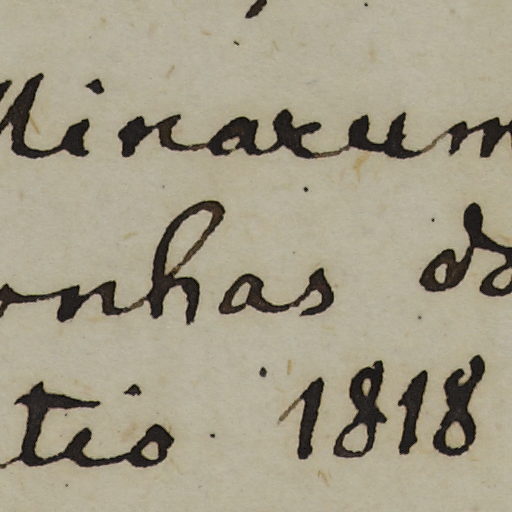 Minarum
onhas do
tio 1818